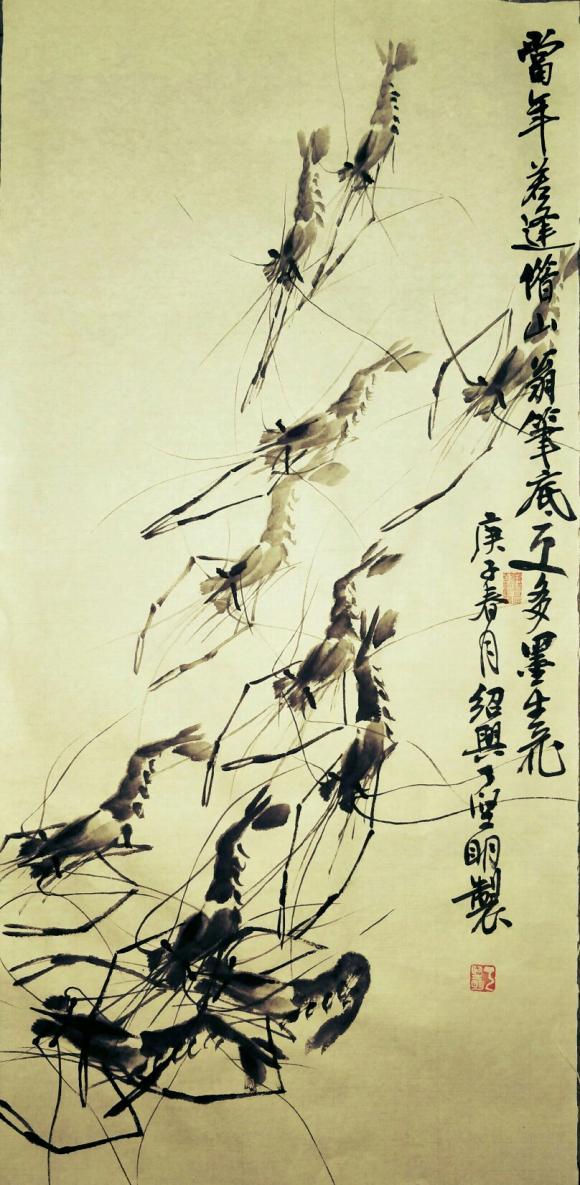 當年若逢借山翁筆底更多墨生花
庚子春月紹興丁堅明製